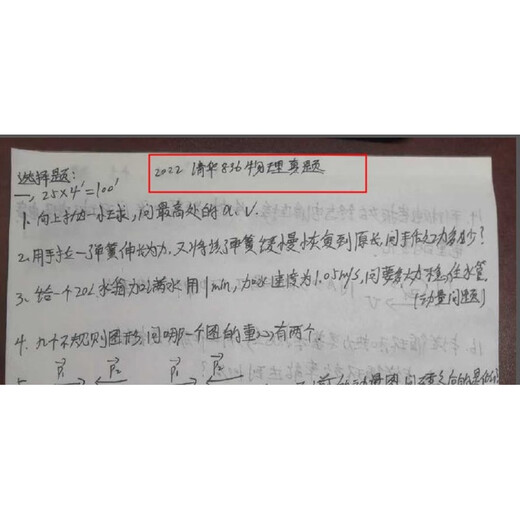 2022 清华836物理真题
选择题:
一, 25×4'=100'
1. 向上抛一小球,问最高处的a、v.
2. 用手拉一弹簧伸长为 又将该弹簧缓慢恢复到原长,问手作功多少?
3. 给一个20L水箱加满水用1min, 加水速度为1.05m/s,问要多大力拉住水管.
(动量问题)
4. 九个不规则图形,问哪一个图的重心有两个.
P1 P2 P1 P2